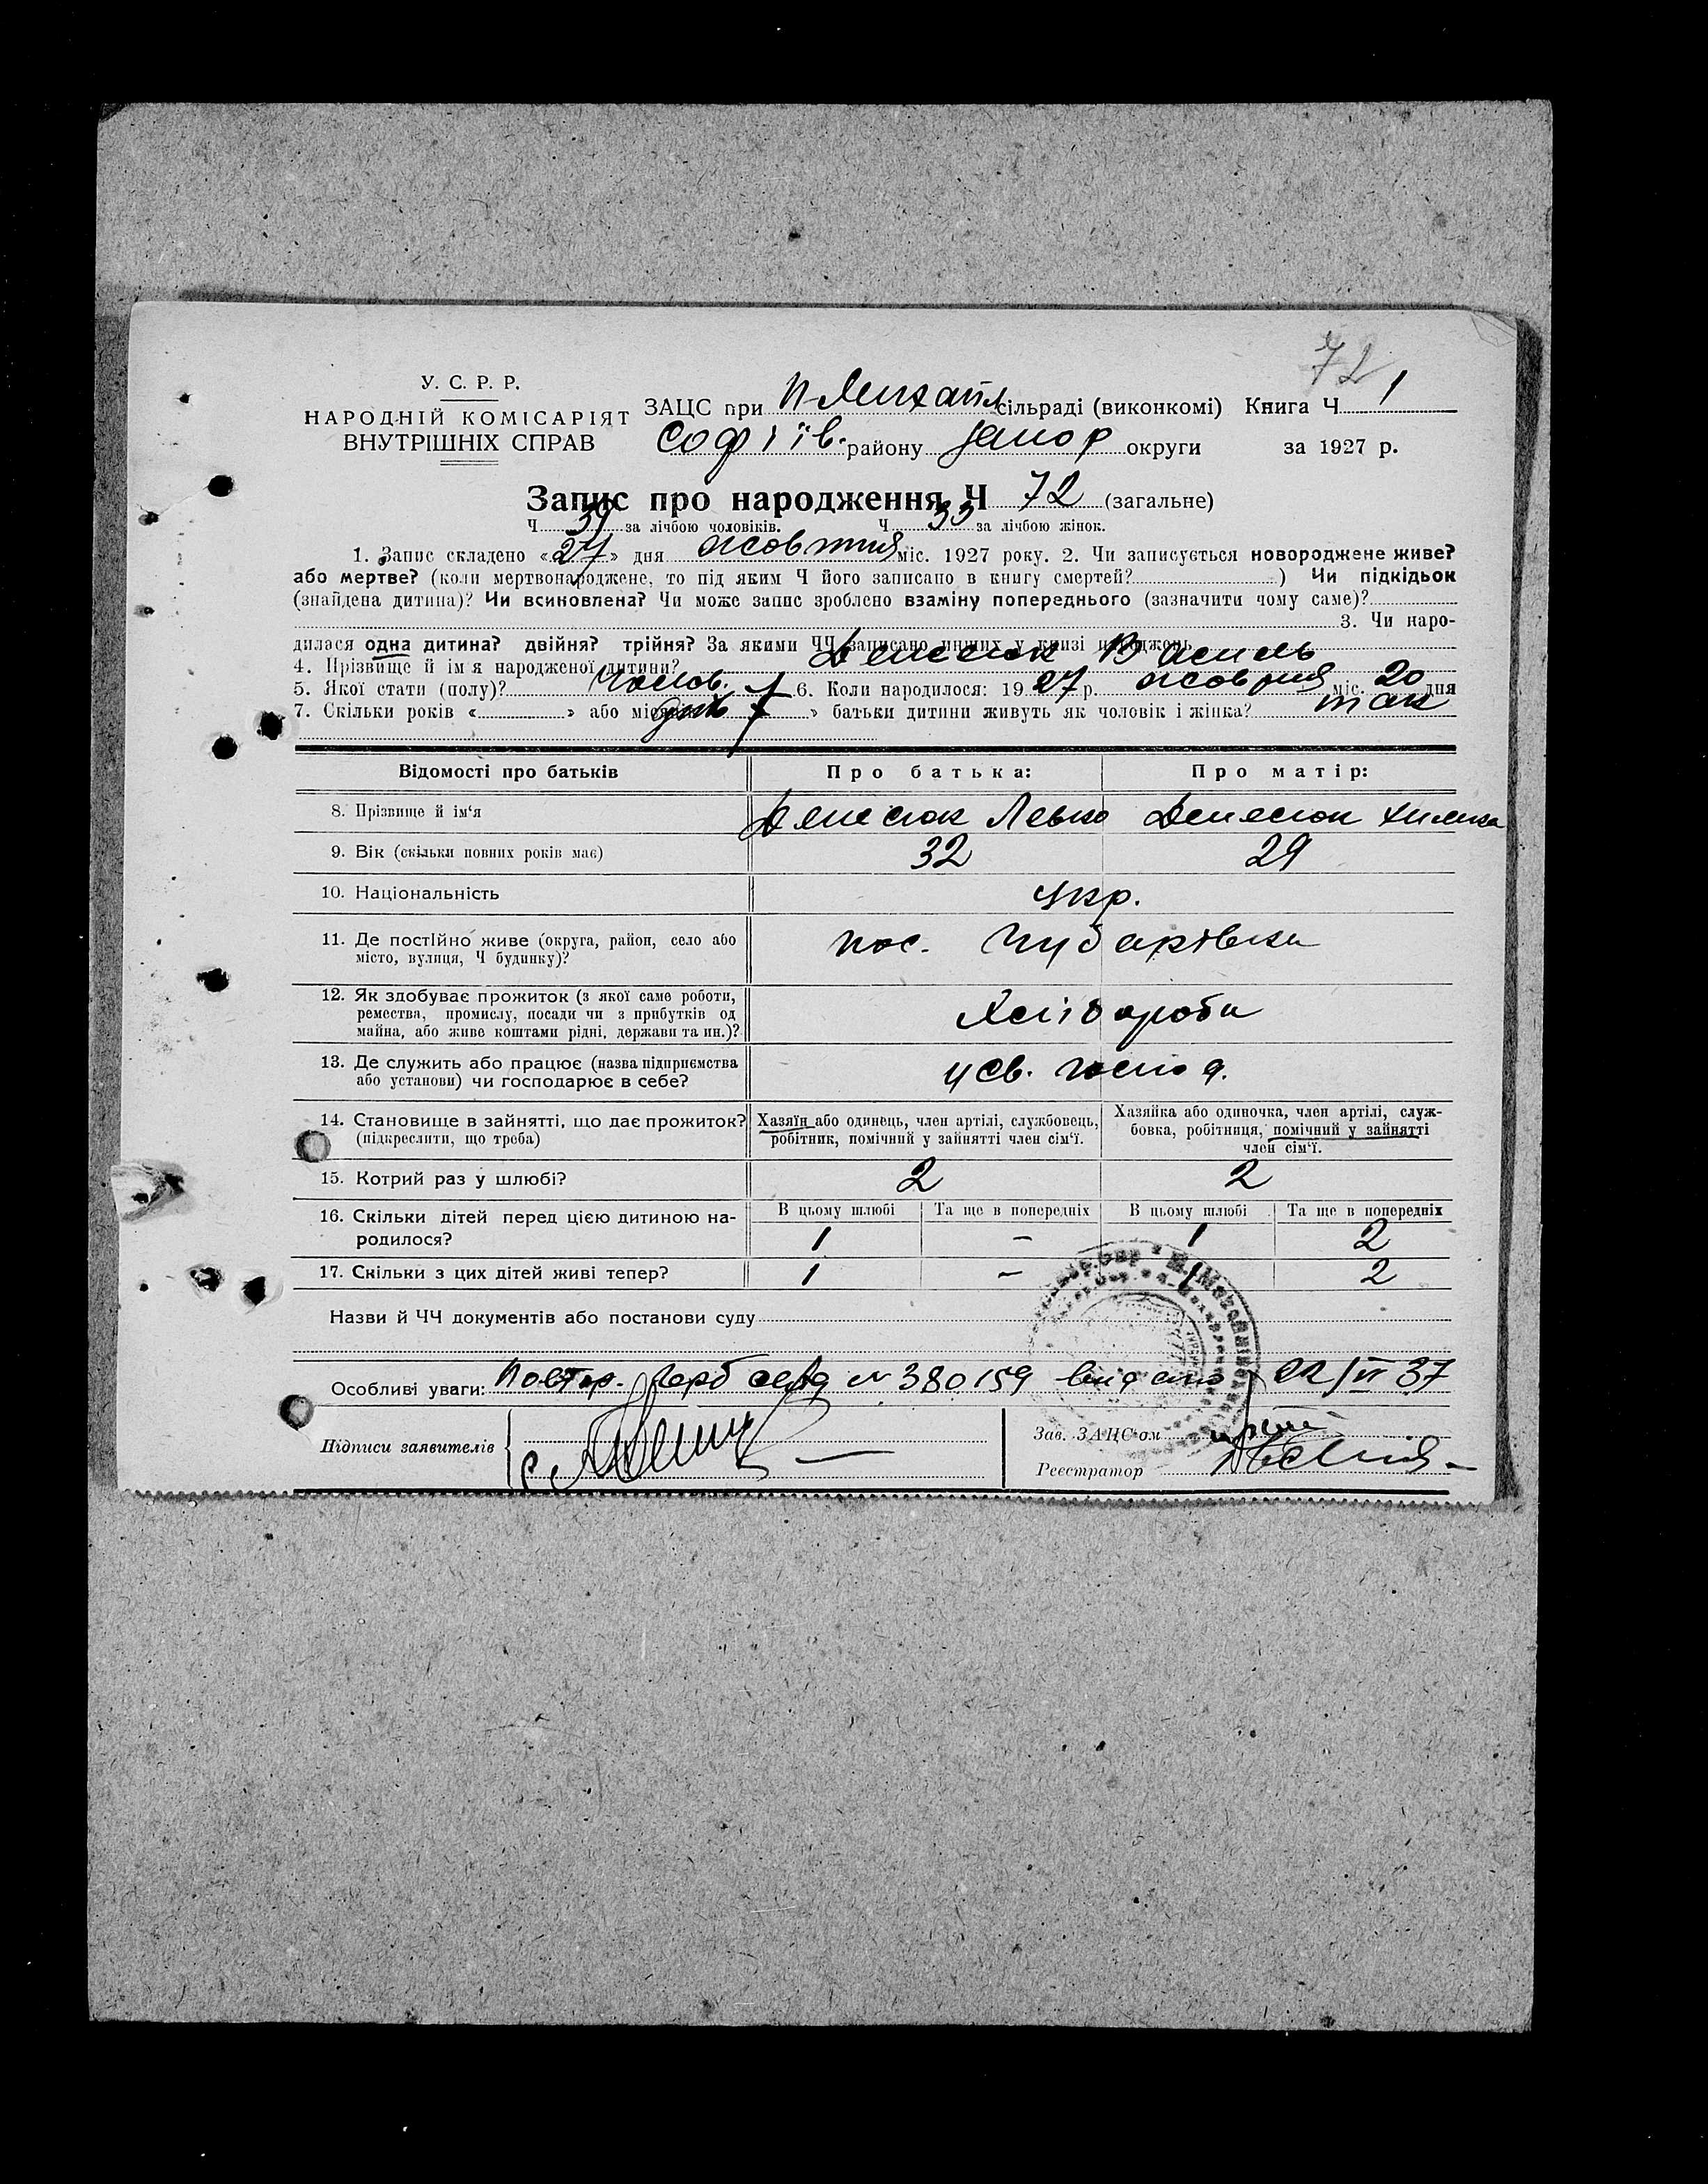 72
У. С. Р. Р.
НАРОДНІЙ КОМІСАРІЯТ
ВНУТРІШНІХ СПРАВ
ЗАЦС при сільраді (виконкомі) Книга Ч 1
Софіїв. району Запор округи за 1927 р.
Запис про народження Ч 72 (загальне)
Ч 39 за лічбою чоловіків. Ч 33 за лічбою жінок.
1. Запис складено «27» дня жовтня міс. 1927 року. 2. Чи записується новороджене живе?
або мертве? (коли мертвонароджене, то під яким Ч його записано в книгу смертей? ) Чи підкідьок
(знайдена дитина)? Чи всиновлена? Чи може запис зроблено взаміну попереднього (зазначити чому саме)?
3. Чи наро-
дилася одна дитина? двійня? трійня? За якими ЧЧ записано инших у книзі народжень
4. Прізвище й ім'я народженої дитини? Денесюк Василь
5. Якої стати (полу)? Чолов. 6. Коли народилося: 1927 р. жовтня міс. 20 дня
7. Скільки років « » або місяців 7 » батьки дитини живуть як чоловік і жінка? так
Відомості про батьків
Про батька:
Про матір:
8. Прізвище й ім'я
Денесюк Левко
Денесюк
9. Вік (скільки повних років має)
32
29
10. Національність
Укр.
11. Де постійно живе (округа, район, село або
місто, вулиця, Ч будинку)?
пос. Чубарівка
12. Як здобуває прожиток (з якої саме роботи,
ремества, промислу, посади чи з прибутків од
майна, або живе коштами рідні, держави та ин.)?
Хліборобн
13. Де служить або працює (назва підприємства
або установи) чи господарює в себе?
у св. господ.
14. Становище в зайнятті, що дає прожиток?
(підкреслити, що треба)
Хазяїн або одинець, член артілі, службовець,
робітник, помічний у зайнятті член сім'ї.
Хазяйка або одиночка, член артілі, служ-
бовка, робітниця, помічний у зайнятті
член сім'ї.
15. Котрий раз у шлюбі?
2
2
16. Скільки дітей перед цією дитиною на-
родилося?
В цьому шлюбі
Та ще в попередніх
В цьому шлюбі
Та ще в попередніх
1
-
1
2
17. Скільки з цих дітей живі тепер?
1
-
1
2
Назви й ЧЧ документів або постанови суду
Особливі уваги: Повтор. герб свід № 380159 видано 22/VI 37
Підписи заявителів
Зав. ЗАЦС'ом
Реєстратор